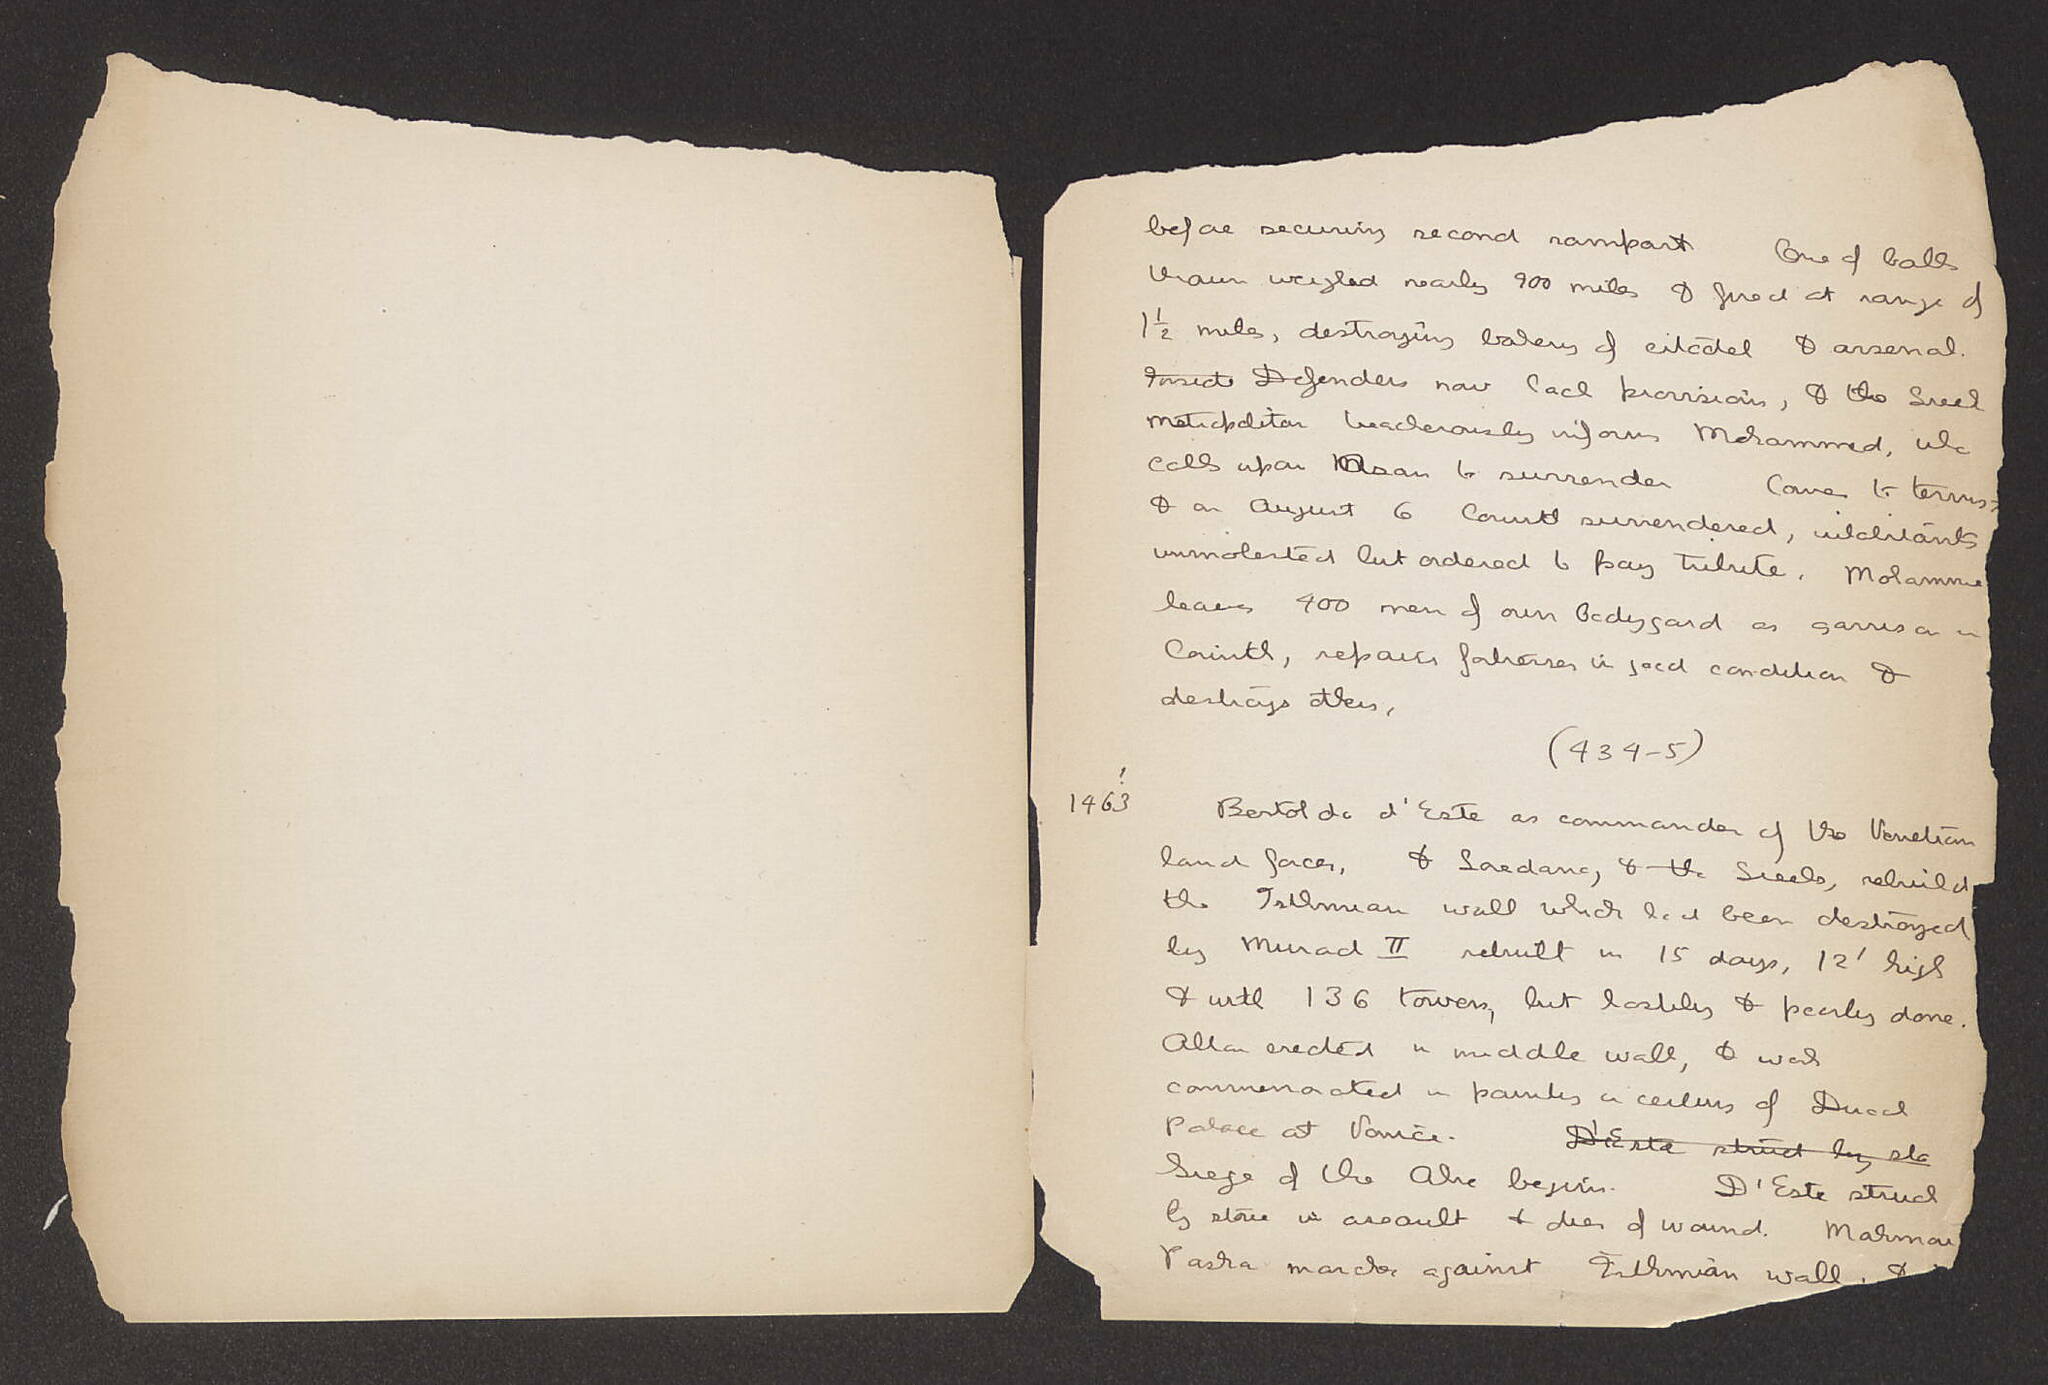 before securing second rampart One of balls
thrown weighed nearly 900 miles & fired at range of
1½ miles, destroying bakery of citadel & arsenal.
Inside Defenders now lack provisions, & the Greek
metropolitan treacherously informs Mohammed, who
calls upon Asan to surrender Comes to terms,
& on August 6 Corinth surrendered, inhabitants
unmolested but ordered to pay tribute. Mohamme
leaves 400 men of own bodygard as garrison in
Corinth, repairs fortresses in good condition &
destroys others,
(434-5)
!
1463 Bertoldo d'Este as commander of the Venetian
land forces, & Loredano, & the Greeks, rebuild
the Isthmian wall which had been destroyed
by Murad II rebuilt in 15 days, 12' high
& with 136 towers, but hastily & poorly done.
Altar erected in middle wall, & work
commemorated in painting in ceiling of Ducal
Palace at Venice. D'Este struck by sto
Siege of the Akro begins. D'Este struck
by stone in assault & dies of wound. Mahmou
Pasha marches against Isthmian wall, &